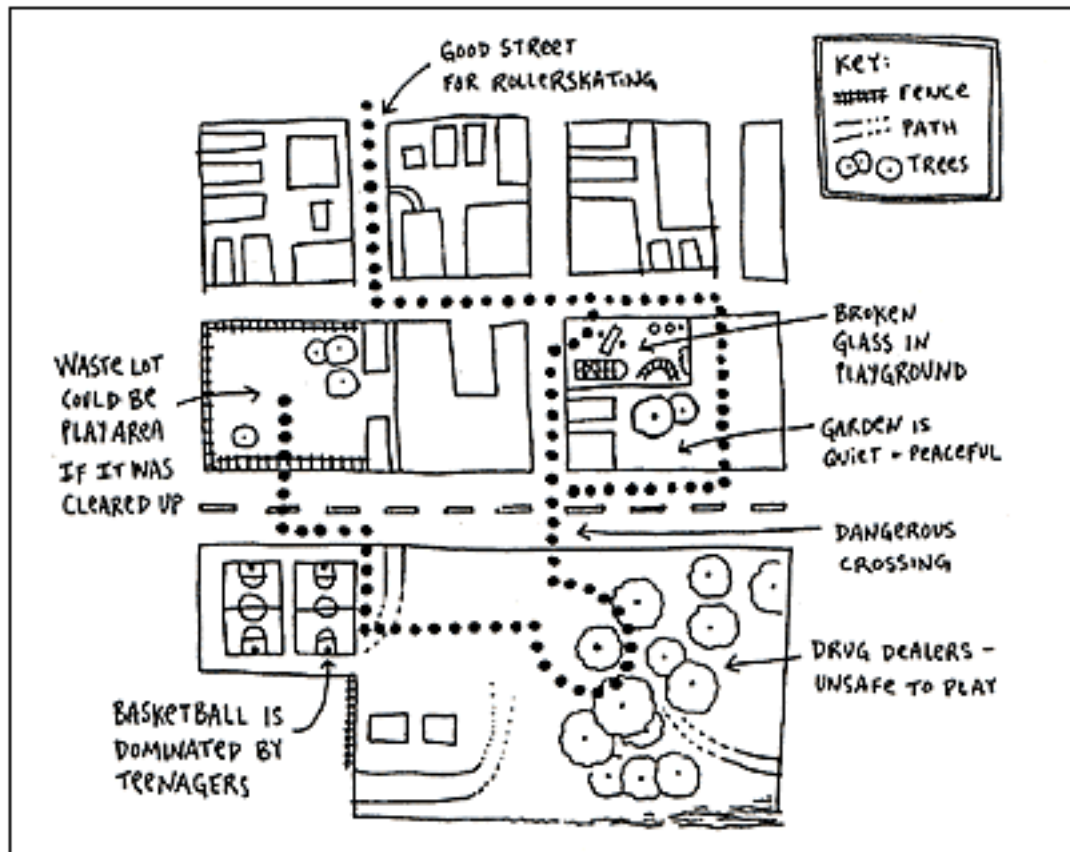 GOOD STREET
FOR ROLLERSKATING
KEY:
FENCE
PATH
TREES
WASTE LOT
COULD BE
PLAY AREA
IF IT WAS
CLEARED UP
BROKEN
GLASS IN
PLAYGROUND
GARDEN IS
QUIET - PEACEFUL
DANGEROUS
CROSSING
DRUG DEALERS -
UNSAFE TO PLAY
BASKETBALL IS
DOMINATED BY
TEENAGERS